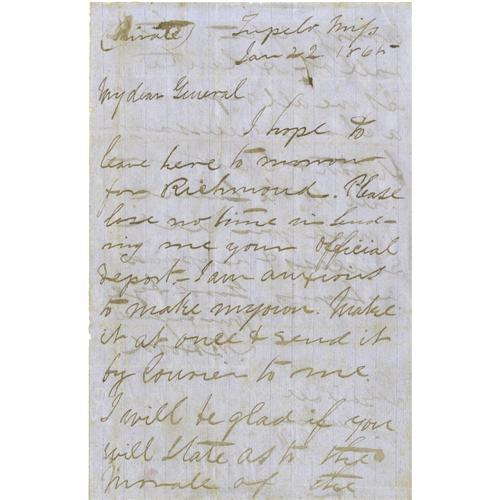 (Private) Tupelo Miss
Jan 22 1865
My dear General
I hope to
leave here to morrow
for Richmond. Please
lose no time in send-
ing me your official
report - I am anxious
to make my own. Make
it at once & send it
by Courier to me.
I will be glad if you
will state as to the
morale of the